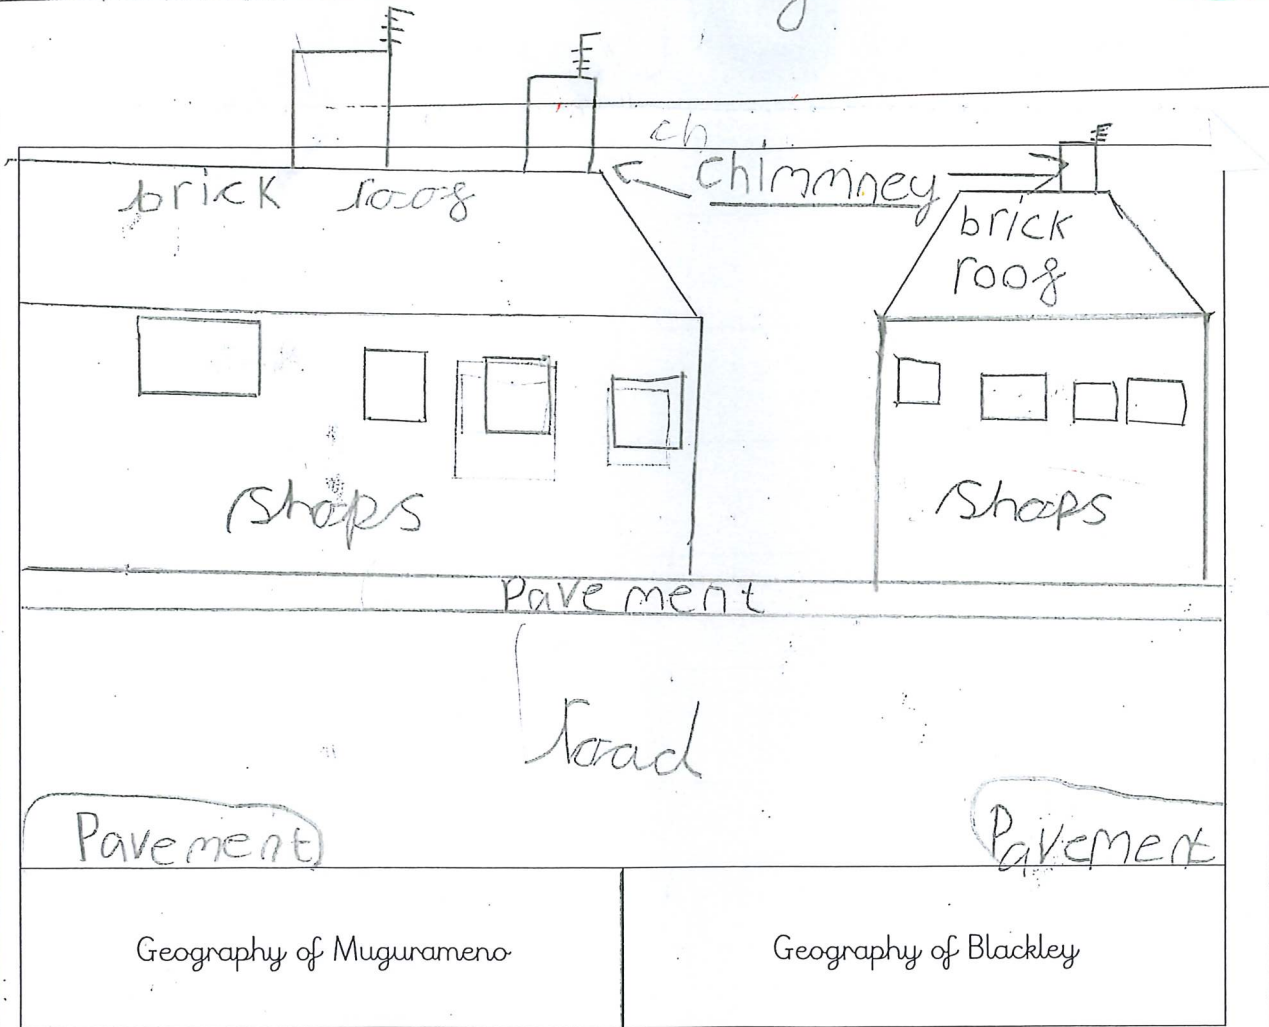 ch
chimmney
brick roof
brick
roof
shops
shops
Pavement
road
Pavement
Pavement
Geography of Mugurameno
Geography of Blackley